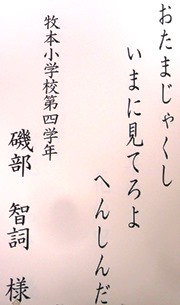 おたまじゃくし
いまに見てろよ
へんしんだ
牧本小学校第四学年
磯部 智詞 様